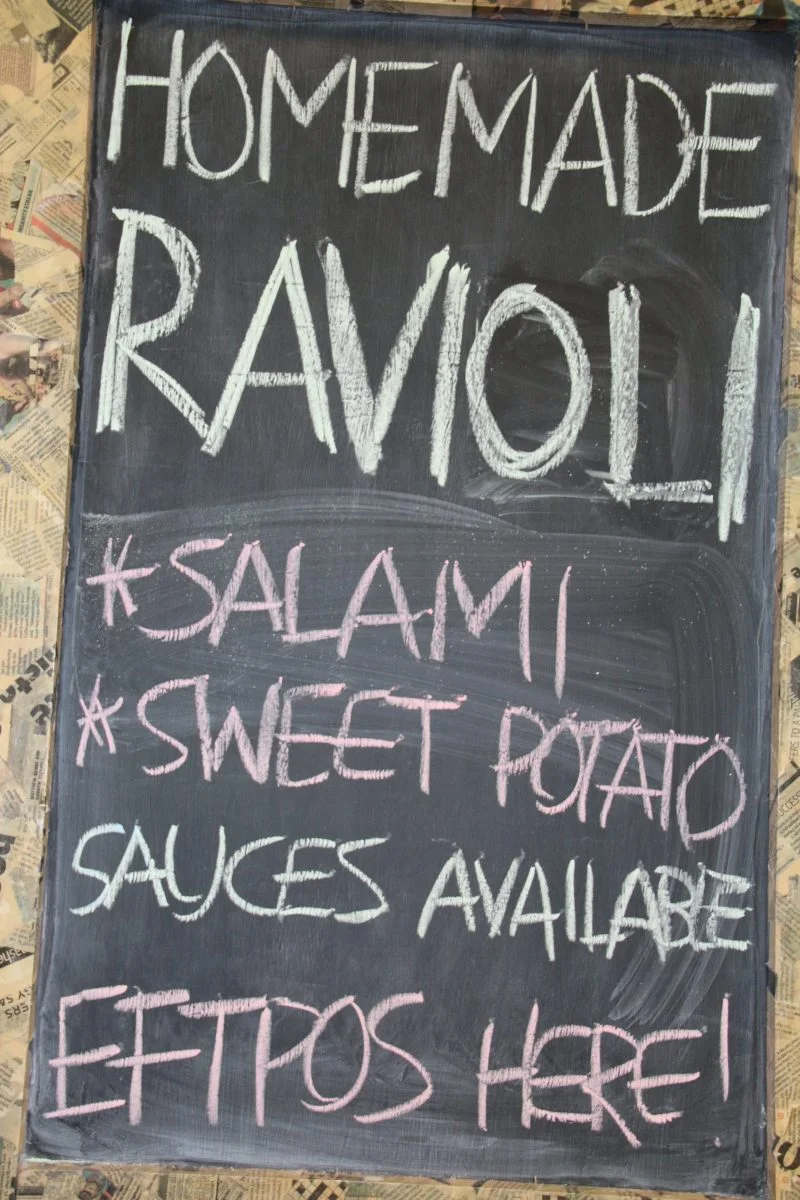 HOMEMADE
RAVIOLI
*SALAMI
*SWEET POTATO
SAUCES AVAILABLE
EFTPOS HERE!